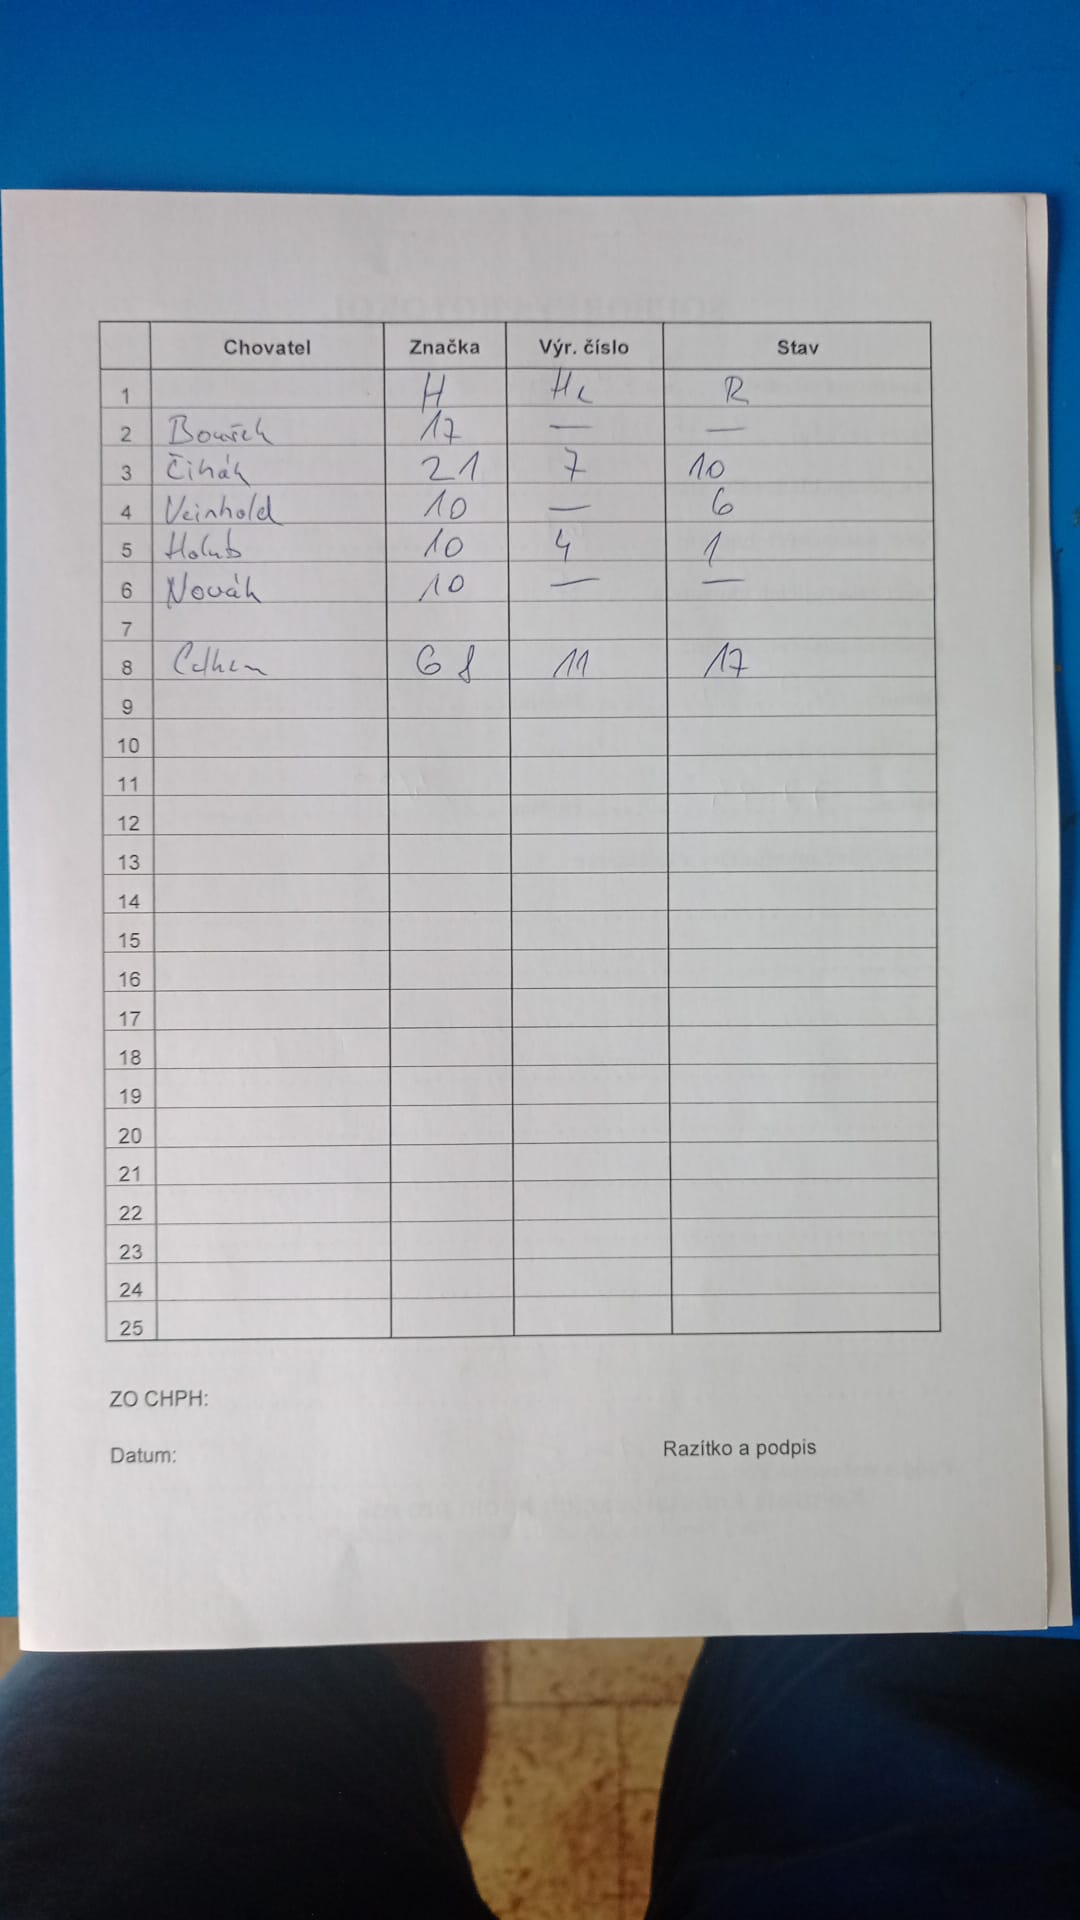 Chovatel Značka Výr. číslo Stav
1 H Hc R
2 Bouřek 17 — —
3 Čihák 21 7 10
4 Veinhold 10 — 6
5 Holub 10 4 1
6 Novák 10 — —
7
8 Celkem 68 11 17
9
10
11
12
13
14
15
16
17
18
19
20
21
22
23
24
25
ZO CHPH:
Datum: Razítko a podpis